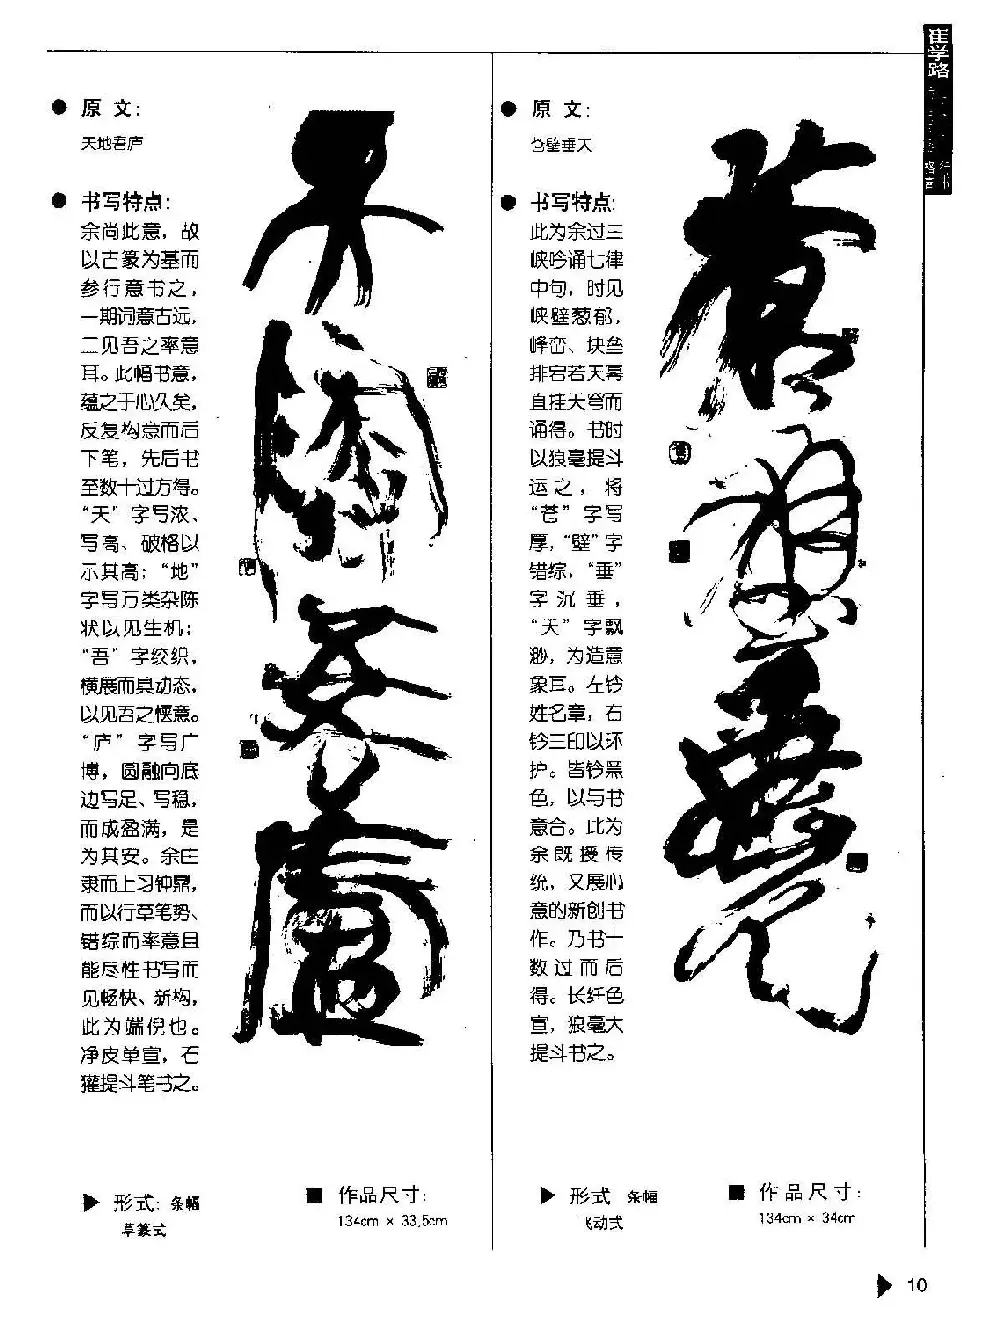 崔学路
● 原 文：
天地吾庐
● 书写特点：
余尚此意，故
以古篆为基而
参行意书之，
一期词意古远，
二见吾之率意
耳。此幅书意，
蕴之于心久矣，
反复构意而后
下笔，先后书
至数十过方得。
“天”字写浓、
写高、破格以
示其高；“地”
字写万类杂陈
状以见生机；
“吾”字绞织，
横展而具动态，
以见吾之惬意。
“庐”字写广
博，圆融向底
边写足、写稳，
而成盈满，是
为其安。余庄
隶而上习钟鼎，
而以行草笔势、
错综而率意且
能尽性书写而
见畅快、新构，
此为端倪也。
净皮单宣，石
獾提斗笔书之。
▶ 形式：条幅
草篆式
■ 作品尺寸：
134cm × 33.5cm
天地吾庐
● 原 文：
苍壁垂天
● 书写特点：
此为余过三
峡吟诵七律
中句，时见
峡壁葱郁，
峰峦、块垒
排宕若天幕
直挂大穹而
诵得。书时
以狼毫提斗
运之，将
“苍”字写
厚，“壁”字
错综，“垂”
字沉垂，
“天”字飘
渺，为造意
象耳。左钤
姓名章，右
钤三印以环
护。皆钤黑
色，以与书
意合。此为
余既授传
统，又展心
意的新创书
作。乃书一
数过而后
得。长纤色
宣，狼毫大
提斗书之。
▶ 形式 条幅
飞动式
■ 作品尺寸：
134cm × 34cm
苍壁垂天
▶ 10